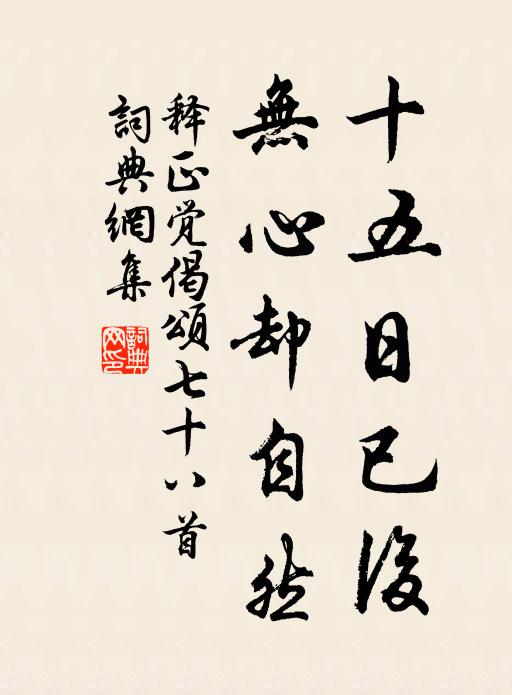 十五日已後
無心却自然
释正觉偈頌七十八首
詞典網集
詞典網印